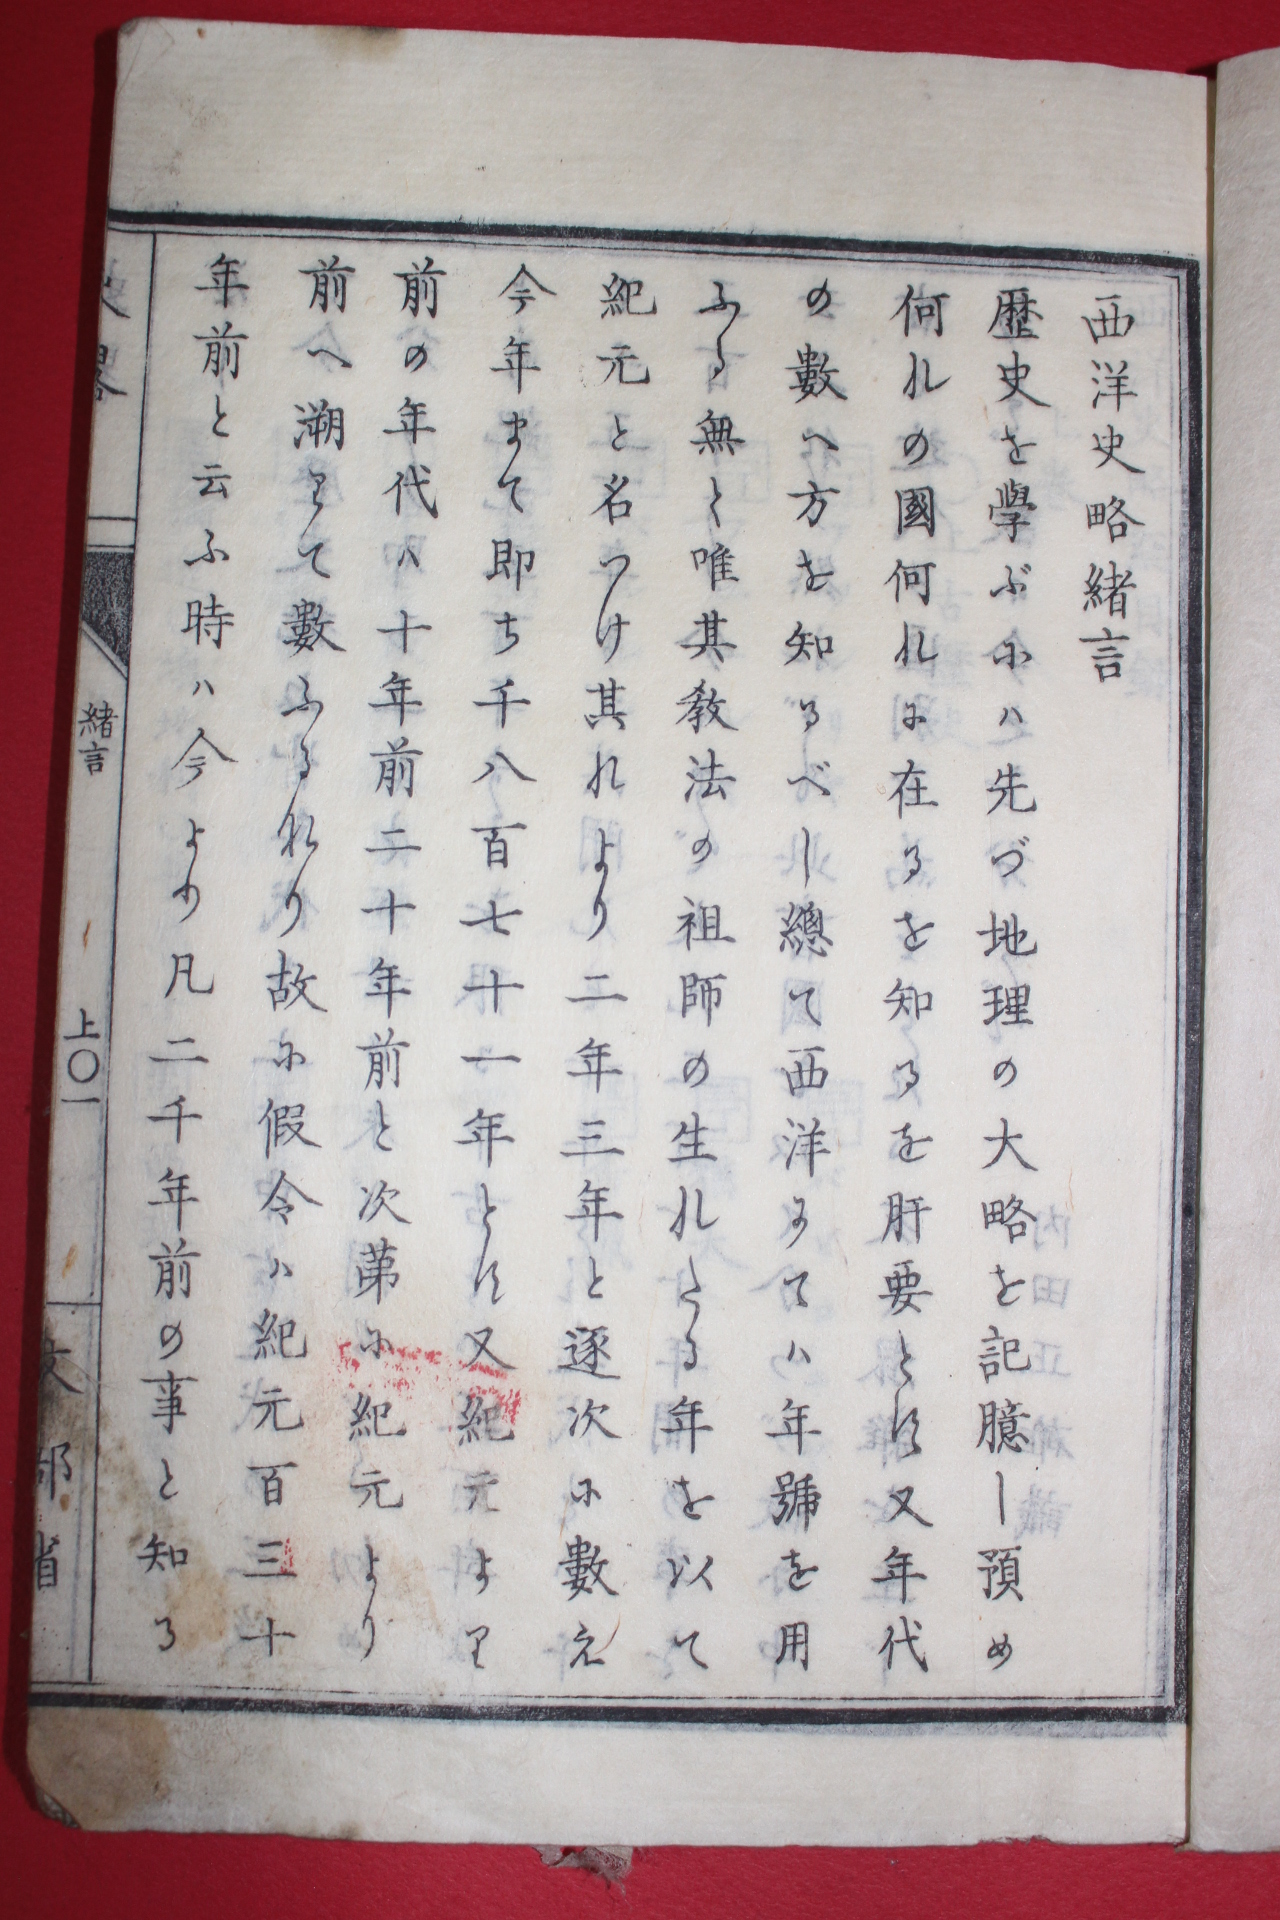 西洋史略緒言
歴史を學ぶにハ先づ地理の大略を記臆し預め
何れの國何れに在るを知るを肝要とす又年代
の數へ方を知るべし總て西洋にてハ年號を用
ふる無く唯其教法の祖師の生れたる年を以て
紀元と名つけ其れより二年三年と逐次に數え
今年まて即ち千八百七十一年とす又紀元より
前の年代ハ十年前二十年前と次第に紀元より
前へ溯りて數ふるなり故に假令ハ紀元百三十
年前と云ふ時ハ今より凡二千年前の事と知る
緒言
上〇一
部省